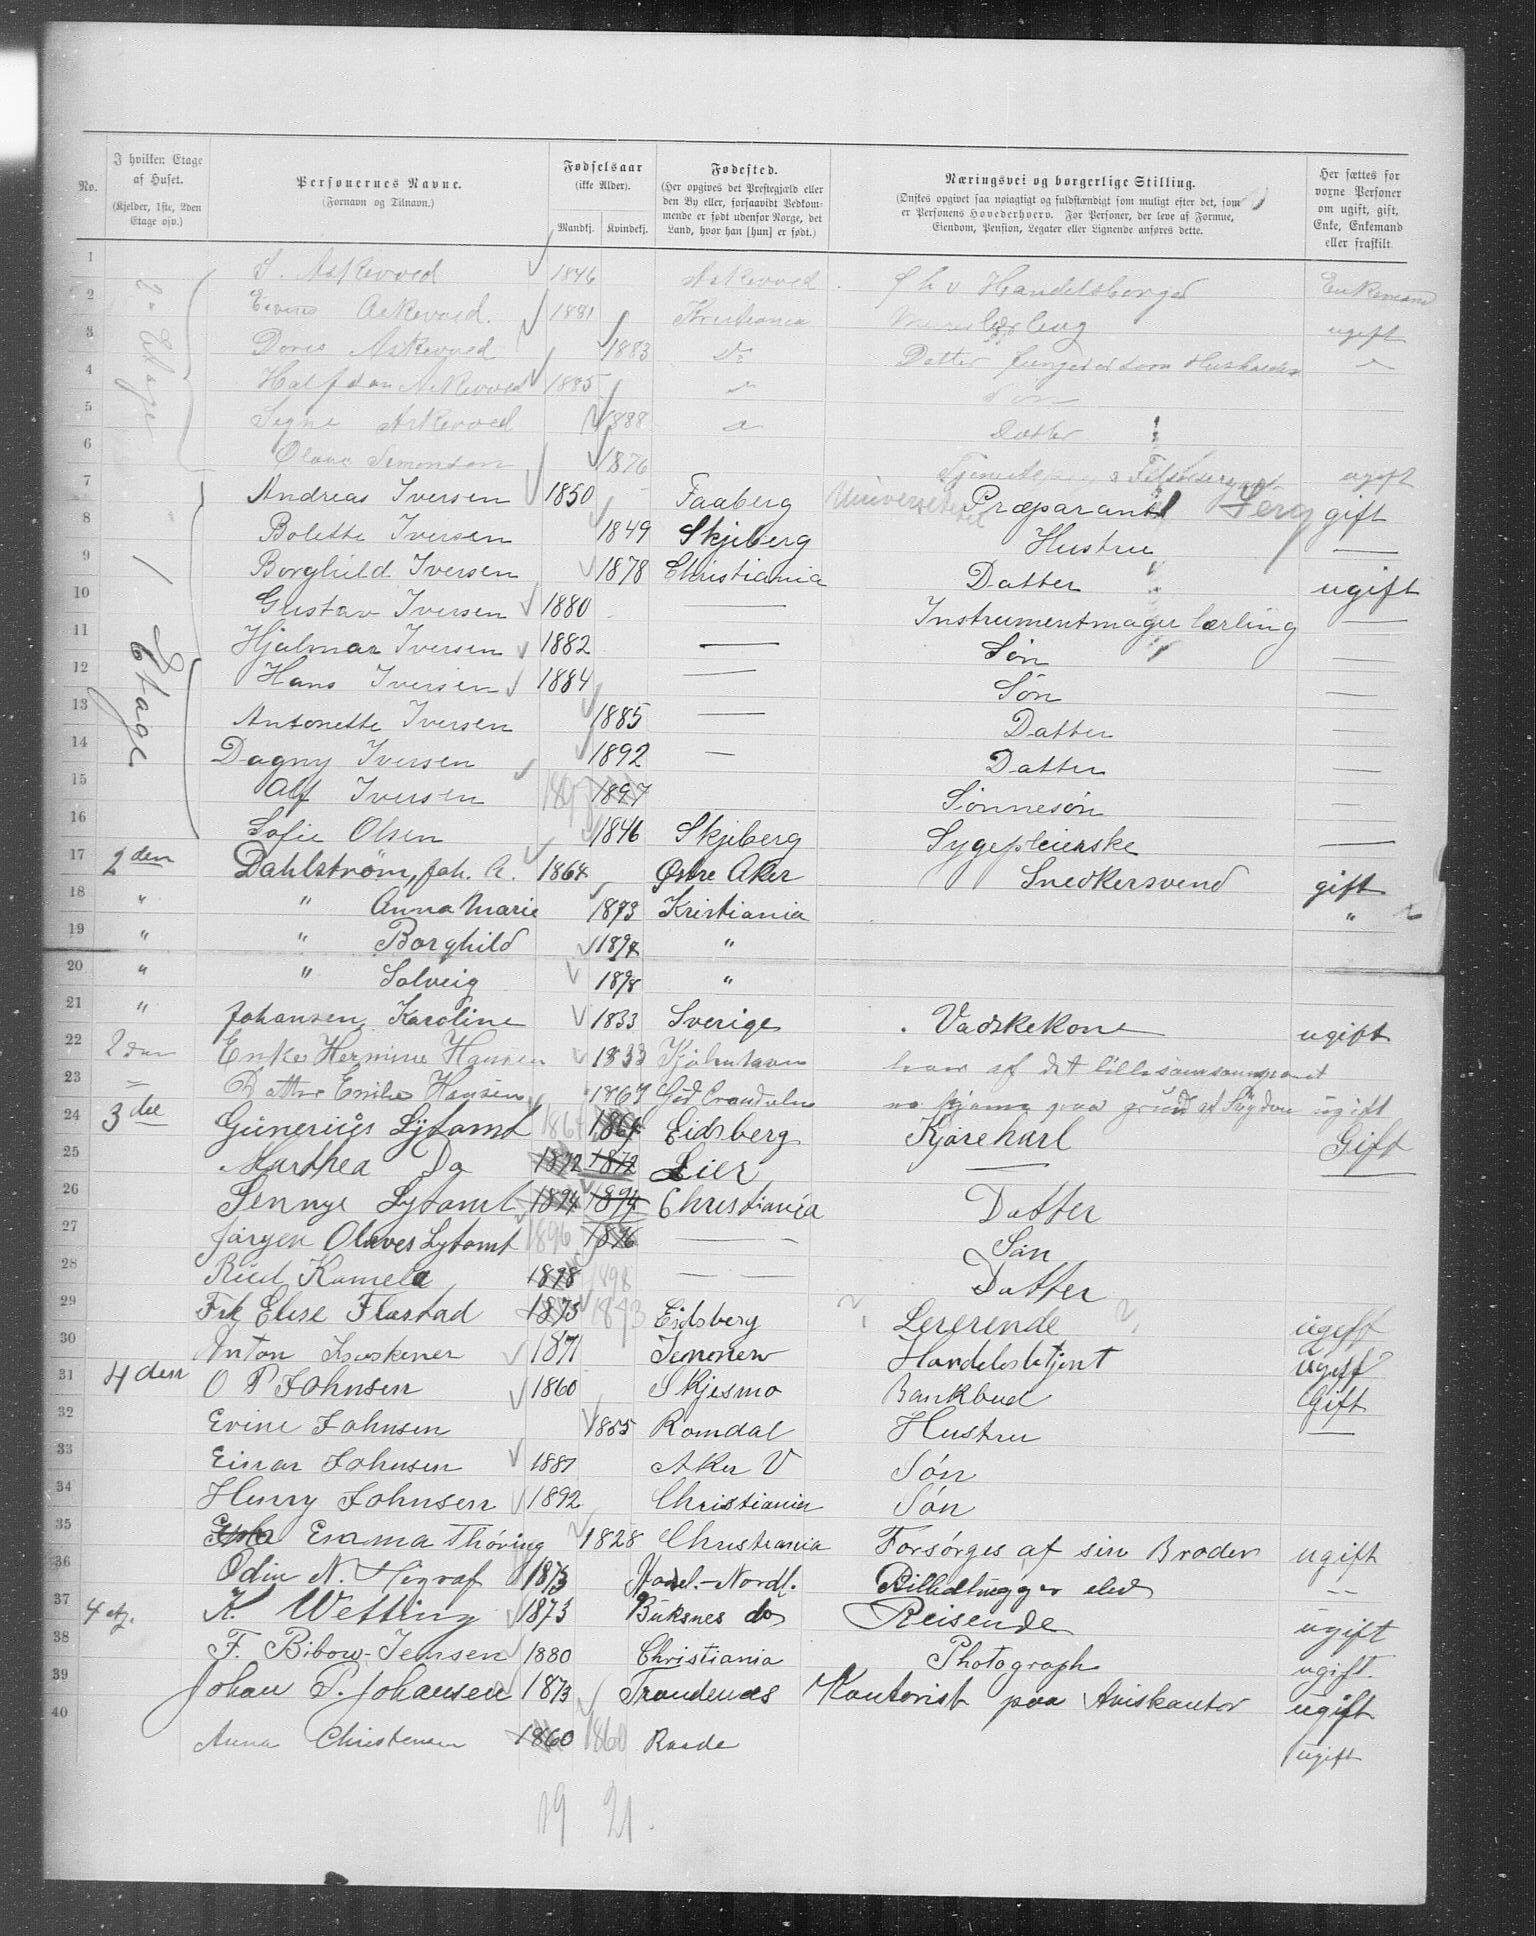 No. I hvilken Etage af Huset. (Kjelder, 1ste, 2den Etage osv.) Personernes Navne. (Fornavn og Tilnavn.) Fødselsaar (ikke Alder). Mandkj. Kvindekj. Fødested. (Her opgives det Prestegjæld eller den By eller, forsaavidt Vedkommende er født udenfor Norge, det Land, hvor han [hun] er født.) Næringsvei og borgerlige Stilling. (Ønskes opgivet saa nøiagtigt og fuldstændigt som muligt efter det, som er Personens Hovederhverv. For Personer, der leve af Formue, Eiendom, Pension, Legater eller Lignende anføres dette. Her sættes for voxne Personer om ugift, gift, Enke, Enkemand eller fraskilt.
1 2. Etage S. Askevold 1846 Askevold f h v Handelsborger Enkemand
2 Askevold 1881 Kristiania ugift
3 Doris Askevold 1883 Do Datter fungerer som Husholder
4 Halfdan Askevold 1885 Søn
5 Signe Askevold 1888 Datter
6 Olava Simonsen 1876 ugift
7 1 Etage Andreas Iversen 1850 Faaberg Universitetet Præparant gift
8 Bolette Iversen 1849 Skjeberg Hustru —
9 Borghild Iversen 1878 Christiania Datter ugift
10 Gustav Iversen 1880 — Instrumentmager lærling —
11 Hjalmar Iversen 1882 — Søn —
12 Hans Iversen 1884 — Søn —
13 Antonette Iversen 1885 — Datter —
14 Dagny Iversen 1892 — Datter —
15 Alf Iversen 1897 1897 Sønnesøn —
16 Sofie Olsen 1846 Skjeberg Sygepleierske —
17 2den Dahlström, Joh. A. 1864 Østre Aker Snedkersvend gift
18 " " Anna Marie 1873 Kristiania "
19 " " Borghild 1894 "
20 " " Solveig 1898 "
21 " Johansen, Karoline 1833 Sverige Vadskekone ugift
22 2den Enke Hermine Hansen 1833 Kjøbnhavn
23 Datter Emilie Hansen 1867 ugift
24 3die Gunerius Lytomt 1864 1864 Eidsberg Kjørekarl Gift
25 Marthea Do 1872 1872 Lier — —
26 Jennye Lytomt 1894 1894 Christiania Datter
27 Jørgen Olaves Lytomt 1896 1896 — Søn
28 Rud Kamela 1898 1898 — Datter
29 Frk Elise Flastad 1873 1873 Eidsberg Lererende ugeff
30 Anton 1871 Handelsbetjent ugeff
31 4 den O P Johnsen 1860 Skjesmo Bankbud Gift
32 Evine Johnsen 1855 Romdal Hustru —
33 Einar Johnsen 1887 Aker V Søn
34 Henry Johnsen 1892 Christiania Søn
35 Emma Thøring 1828 Christiania Forsørges af sin Broder ugift
36 Odin N. 1873 Hadsel.-Nordl. Billedhugger elev
37 4 etg. K. Wetting 1873 Buksnes do Reisende ugift
38 F. Bibow-Jensen 1880 Christiania Photograph ugift.
39 Johan P. Johansen 1873 Trondenæs Kontorist paa Aviskontor ugift
40 Anna Christensen 1860 1860 Raade ugift
19 21.